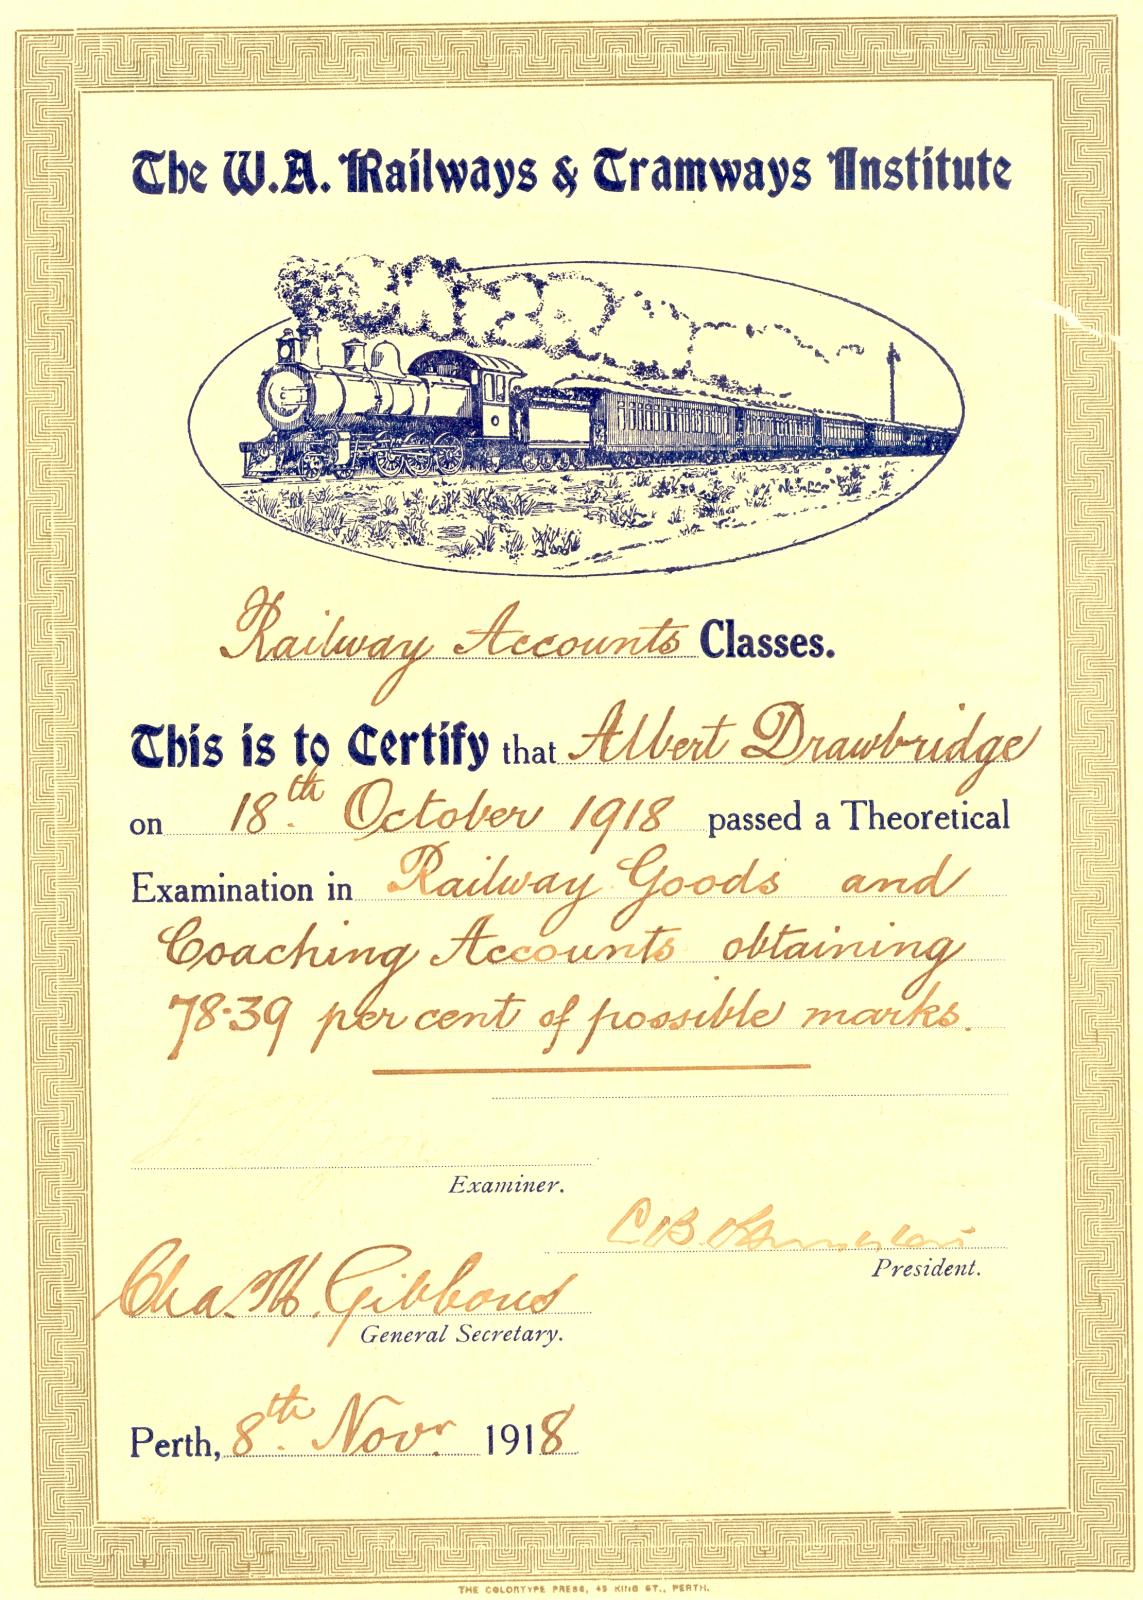 The W.A. Railways & Tramways Institute
Railway Accounts Classes.
This is to Certify that Albert Drawbridge
on 18th. October 1918 passed a Theoretical
Examination in Railway Goods and
Coaching Accounts obtaining
78·39 per cent of possible marks.
Examiner.
C B
President.
Chas. H. Gibbons
General Secretary.
Perth, 8th. Novr. 1918
THE COLORTYPE PRESS, 49 KING ST., PERTH.